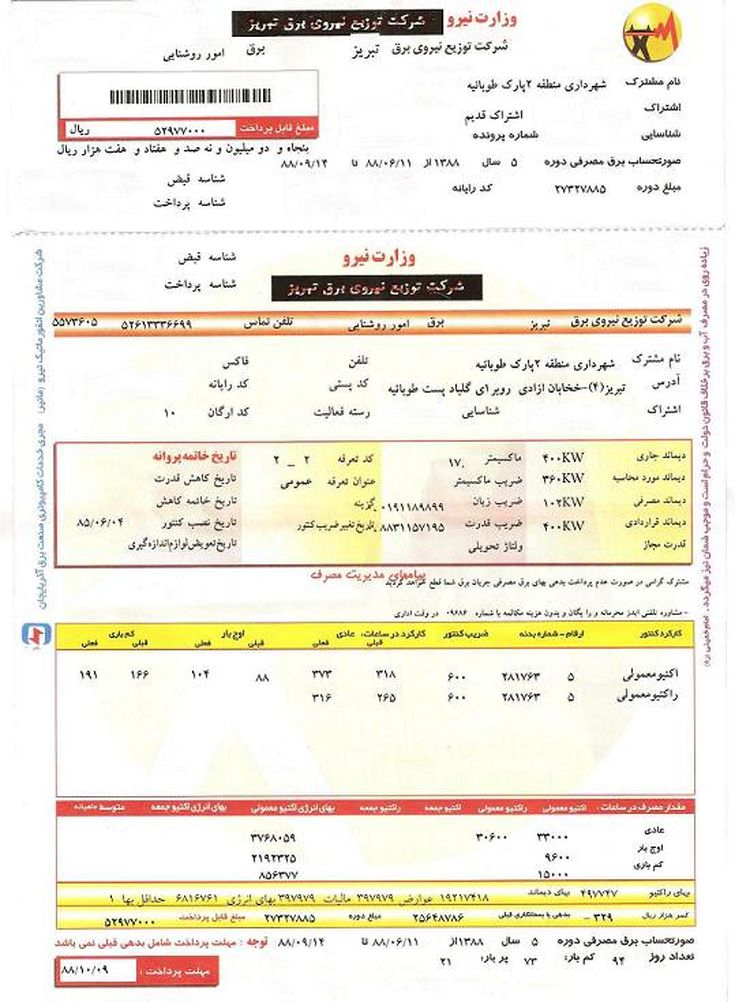 وزارت نیرو شرکت توزیع نیروی برق تبریز
شرکت توزیع نیروی برق تبریز برق امور روشنایی
نام مشترک شهرداری منطقه ۲پارک طوبائیه
اشتراک اشتراک قدیم
مبلغ قابل پرداخت ۵۲۹۷۷۰۰۰ ریال
شناسایی شماره پرونده
پنجاه و دو میلیون و نه صد و هفتاد و هفت هزار ریال
صورتحساب برق مصرفی دوره ۵ سال ۱۳۸۸ از ۸۸/۰۶/۱۱ تا ۸۸/۰۹/۱۴
شناسه قبض
مبلغ دوره ۲۷۳۲۷۸۸۵ کد رایانه
شناسه پرداخت
وزارت نیرو
شناسه قبض
شرکت توزیع نیروی برق تبریز
شناسه پرداخت
شرکت توزیع نیروی برق تبریز برق امور روشنایی تلفن تماس ۵۲۶۱۳۳۳۶۶۹۹ ۵۵۷۳۶۰۵
نام مشترک شهرداری منطقه ۲پارک طوبائیه تلفن فاکس
آدرس تبریز(۴)-خخابان ازادی روبر ای گلباد پست طوبائیه کد پستی کد رایانه
اشتراک شناسایی رسته فعالیت کد ارگان ۱۰
دیماند جاری ۴۰۰KW ماکسیمتر ۱۷. کد تعرفه ۲ _ ۲ تاریخ خاتمه پروانه
دیماند مورد محاسبه ۳۶۰KW ضریب ماکسیمتر عنوان تعرفه عمومی تاریخ کاهش قدرت
دیماند مصرفی ۱۰۲KW ضریب زیان ۰۱۹۱۱۸۹۸۹۹ گزینه تاریخ خاتمه کاهش
دیماند قراردادی ۴۰۰KW ضریب قدرت ۸۸۳۱۱۵۷۱۹۵ تاریخ تغییر ضریب کنتور تاریخ نصب کنتور ۸۵/۰۶/۰۴
قدرت مجاز ولتاژ تحویلی تاریخ تعویض لوازم اندازه گیری
پیامهای مدیریت مصرف
مشترک گرامی در صورت عدم پرداخت بدهی بهای برق مصرفی جریان برق شما قطع خواهد گردید
- مشاوره تلفنی ایدز محرمانه و را یگان و بدون هزینه مکالمه با شماره ۰۹۶۸۶ در وقت اداری
کارکرد کنتور ارقام - شماره بدنه ضریب کنتور کارکرد در ساعات: عادی اوج بار کم باری
قبلی فعلی قبلی فعلی قبلی فعلی
اکتیو معمولی ۵ ۲۸۱۷۶۳ ۶۰۰ ۳۱۸ ۳۷۳ ۸۸ ۱۰۴ ۱۶۶ ۱۹۱
راکتیو معمولی ۵ ۲۸۱۷۶۳ ۶۰۰ ۲۶۵ ۳۱۶
مقدار مصرف در ساعات : اکتیو معمولی راکتیو معمولی اکتیو جمعه راکتیو جمعه بهای انرژی اکتیو معمولی بهای انرژی اکتیو جمعه متوسط ماهیانه
عادی ۳۳۰۰۰ ۳۰۶۰۰ ۳۷۶۸۰۵۹
اوج بار ۹۶۰۰ ۲۱۹۲۳۲۵
کم باری ۱۵۰۰۰ ۸۵۶۳۷۷
بهای راکتیو ۴۹۷۷۴۷ بهای دیماند ۱۹۲۱۷۴۱۸ عوارض ۳۹۷۹۷۹ مالیات ۳۹۷۹۷۹ بهای انرژی ۶۸۱۶۷۶۱ حداقل بها ۱
کسر هزار ریال ۳۲۹ - بدهی یا بستانکاری قبلی ۲۵۶۴۸۷۸۶ مبلغ دوره ۲۷۳۲۷۸۸۵ مبلغ قابل پرداخت ۵۲۹۷۷۰۰۰
صورتحساب برق مصرفی دوره ۵ سال ۱۳۸۸از ۸۸/۰۶/۱۱ تا ۸۸/۰۹/۱۴ توجه : مهلت پرداخت شامل بدهی قبلی نمی باشد
تعداد روز ۹۴ کم بار: ۷۳ پر بار: ۲۱ مهلت پرداخت : ۸۸/۱۰/۰۹
زیاده روی در مصرف آب و برق برخلاف قانون دولت و حرام است و موجب ضمان نیز میگردد . امام خمینی (ره)
شرکت مشاورین انفورماتیک نیرو (مانیر) مجری خدمات کامپیوتری صنعت برق آذربایجان